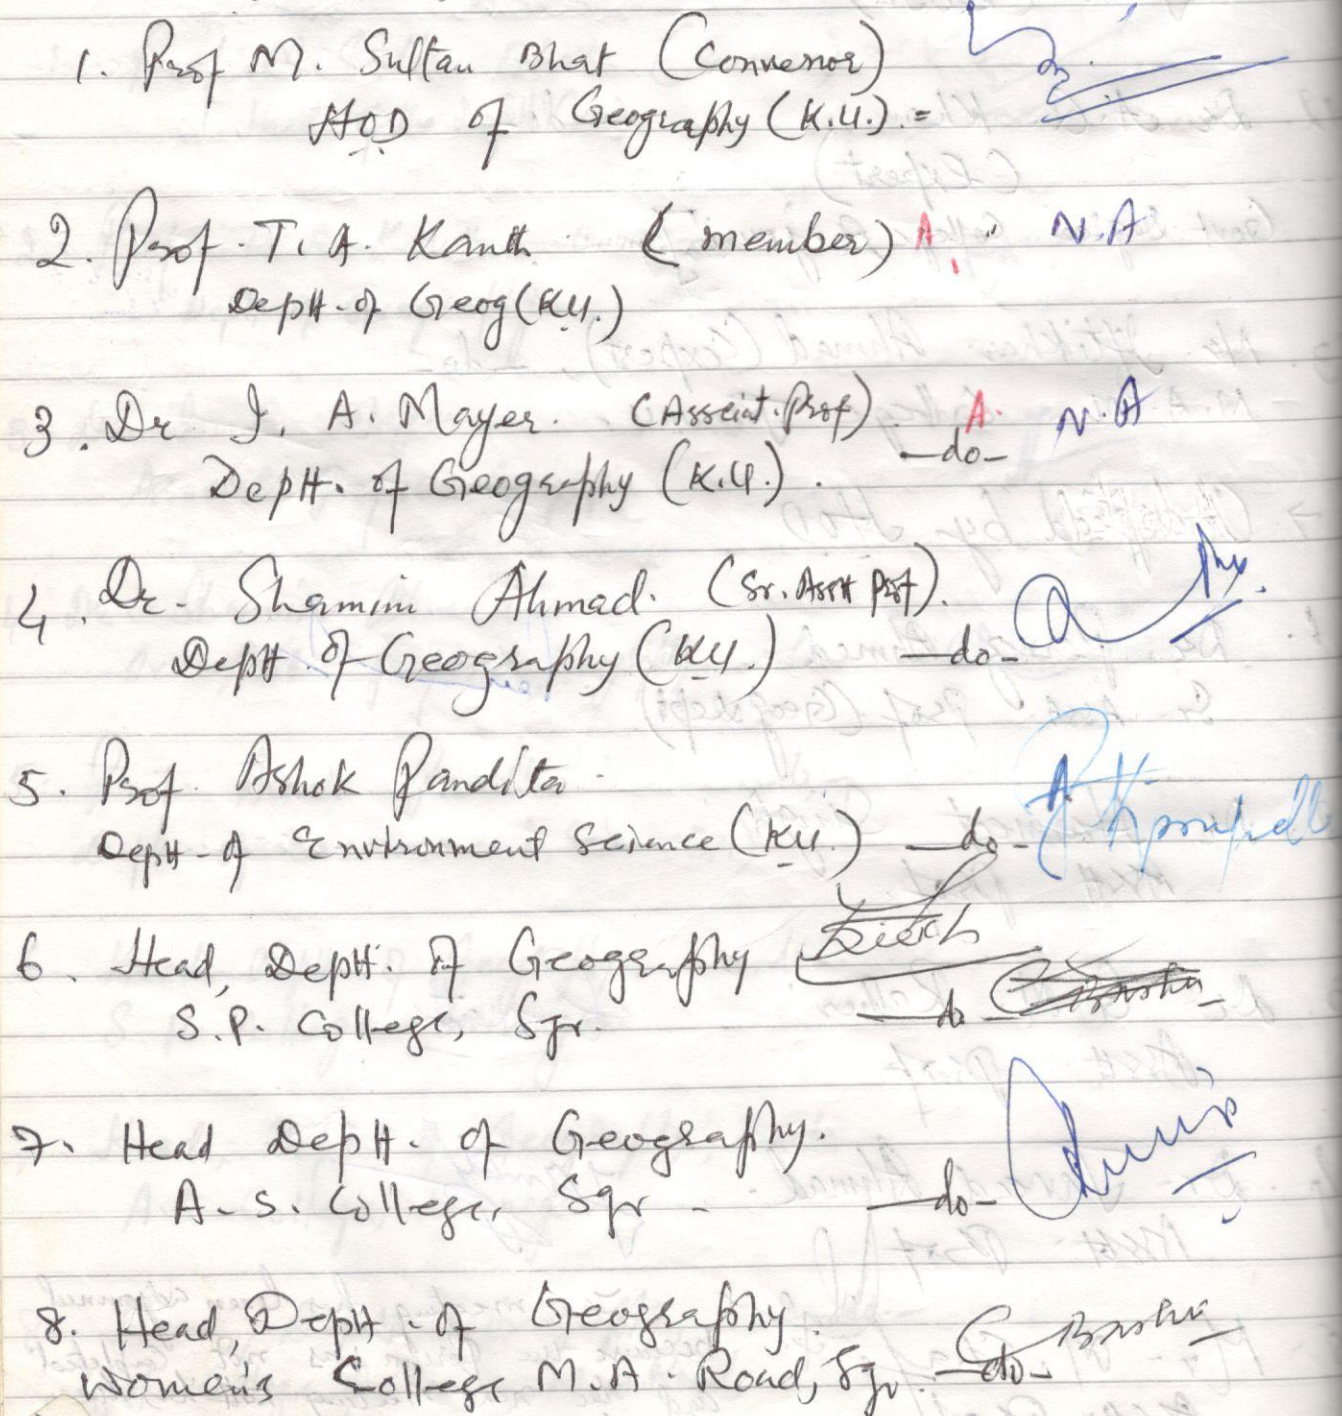 1. Prof M. Sultan Bhat (Convenor)
HOD of Geography (K.U.). =
2. Prof. T. A. Kanth (member) A. N.A
Deptt. of Geog (KU.)
3. Dr I. A. Mayer. (Associat. Prof) A. N.A
Deptt. of Geography (K.U.). —do—
4. Dr. Shamim Ahmad. (Sr. Asstt Prof).
Deptt of Geography (KU.) —do—
5. Prof. Ashok Pandita
Deptt. of Environment Science (KU.) —do—
6. Head, Deptt. of Geography
S.P. College, Sgr. —do
7. Head Deptt. of Geography.
A. S. College, Sgr - —do—
8. Head, Deptt. of Geography.
Women's College M.A. Road, Sgr. —do—